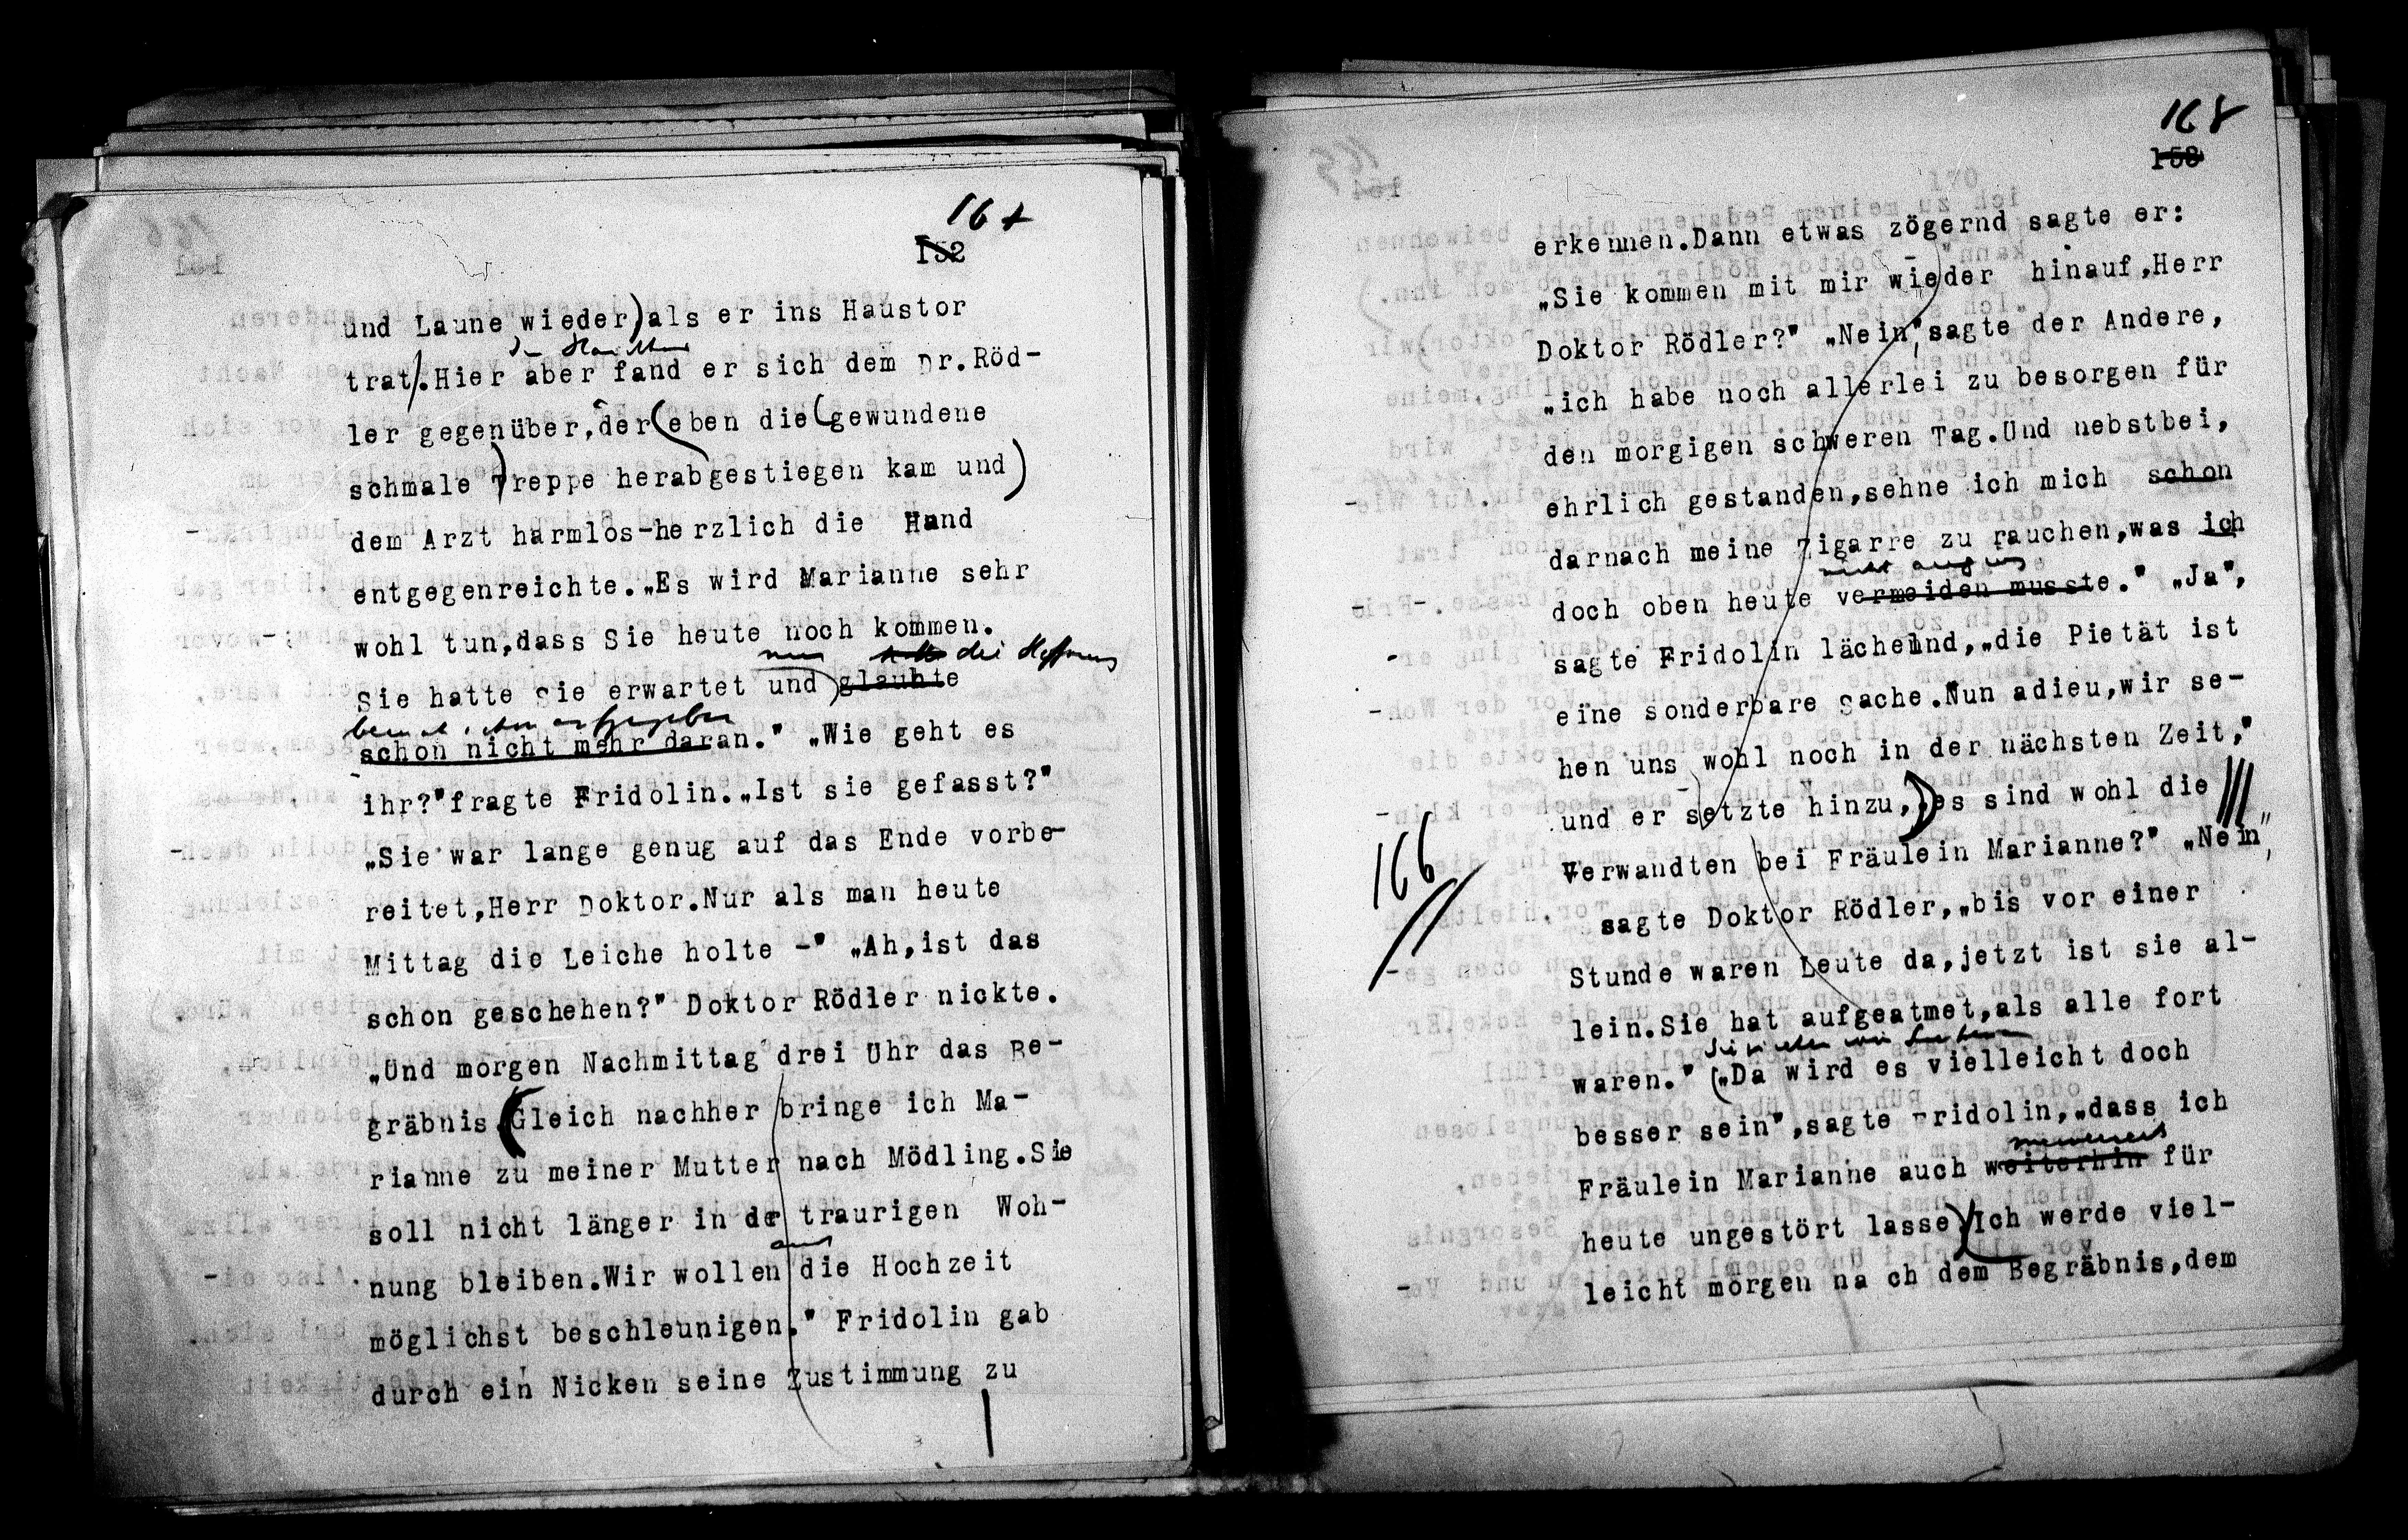 167
152
und Laune wieder) als er ins Haustor
trat. Hier aber fand er sich dem Dr. Röd-
ler gegenüber, der (eben die (gewundene
schmale) Treppe herabgestiegen kam und)
dem Arzt harmlos-herzlich die Hand
entgegenreichte. „Es wird Marianne sehr
wohl tun, dass Sie heute noch kommen.
nun hatte die Hoffnung
Sie hatte Sie erwartet und) glaubte
beinah schon aufgegeben
schon nicht mehr daran." „Wie geht es
ihr?" fragte Fridolin. „Ist sie gefasst?"
„Sie war lange genug auf das Ende vorbe-
reitet, Herr Doktor. Nur als man heute
Mittag die Leiche holte -" „Ah, ist das
schon geschehen?" Doktor Rödler nickte.
„Und morgen Nachmittag drei Uhr das Be-
gräbnis. (Gleich nachher bringe ich Ma-
rianne zu meiner Mutter nach Mödling. Sie
soll nicht länger in der traurigen Woh-
auch
nung bleiben. Wir wollen die Hochzeit
möglichst beschleunigen." Fridolin gab
durch ein Nicken seine Zustimmung zu
168
153
erkennen. Dann etwas zögernd sagte er:
„Sie kommen mit mir wieder hinauf, Herr
Doktor Rödler?" „Nein", sagte der Andere,
„ich habe noch allerlei zu besorgen für
den morgigen schweren Tag. Und nebstbei,
ehrlich gestanden, sehne ich mich schon
darnach meine Zigarre zu rauchen, was ich
doch oben heute vermeiden musste." „Ja",
sagte Fridolin lächelnd, „die Pietät ist
eine sonderbare Sache. Nun adieu, wir se-
hen uns wohl noch in der nächsten Zeit,"
und er setzte hinzu, „)es sind wohl die
166
Verwandten bei Fräulein Marianne?" „Nein",
sagte Doktor Rödler, „bis vor einer
Stunde waren Leute da, jetzt ist sie al-
lein. Sie hat aufgeatmet, als alle fort
waren." („Da wird es vielleicht doch
besser sein", sagte Fridolin, „dass ich
meinerseits
Fräulein Marianne auch weiterhin für
heute ungestört lasse.) Ich werde viel-
leicht morgen na ch dem Begräbnis, dem